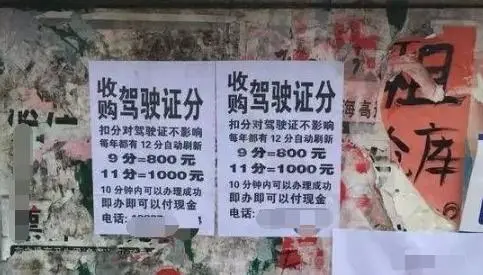 收购 驾驶证分
扣分对驾驶证不影响
每年都有12分自动刷新
9分=800元
11分=1000元
10分钟内可以办理成功
即办即可以付现金
电话:
收购 驾驶证分
扣分对驾驶证不影响
每年都有12分自动刷新
9分=800元
11分=1000元
10分钟内可以办理成功
即办即可以付现金
电话:
海高
租
库